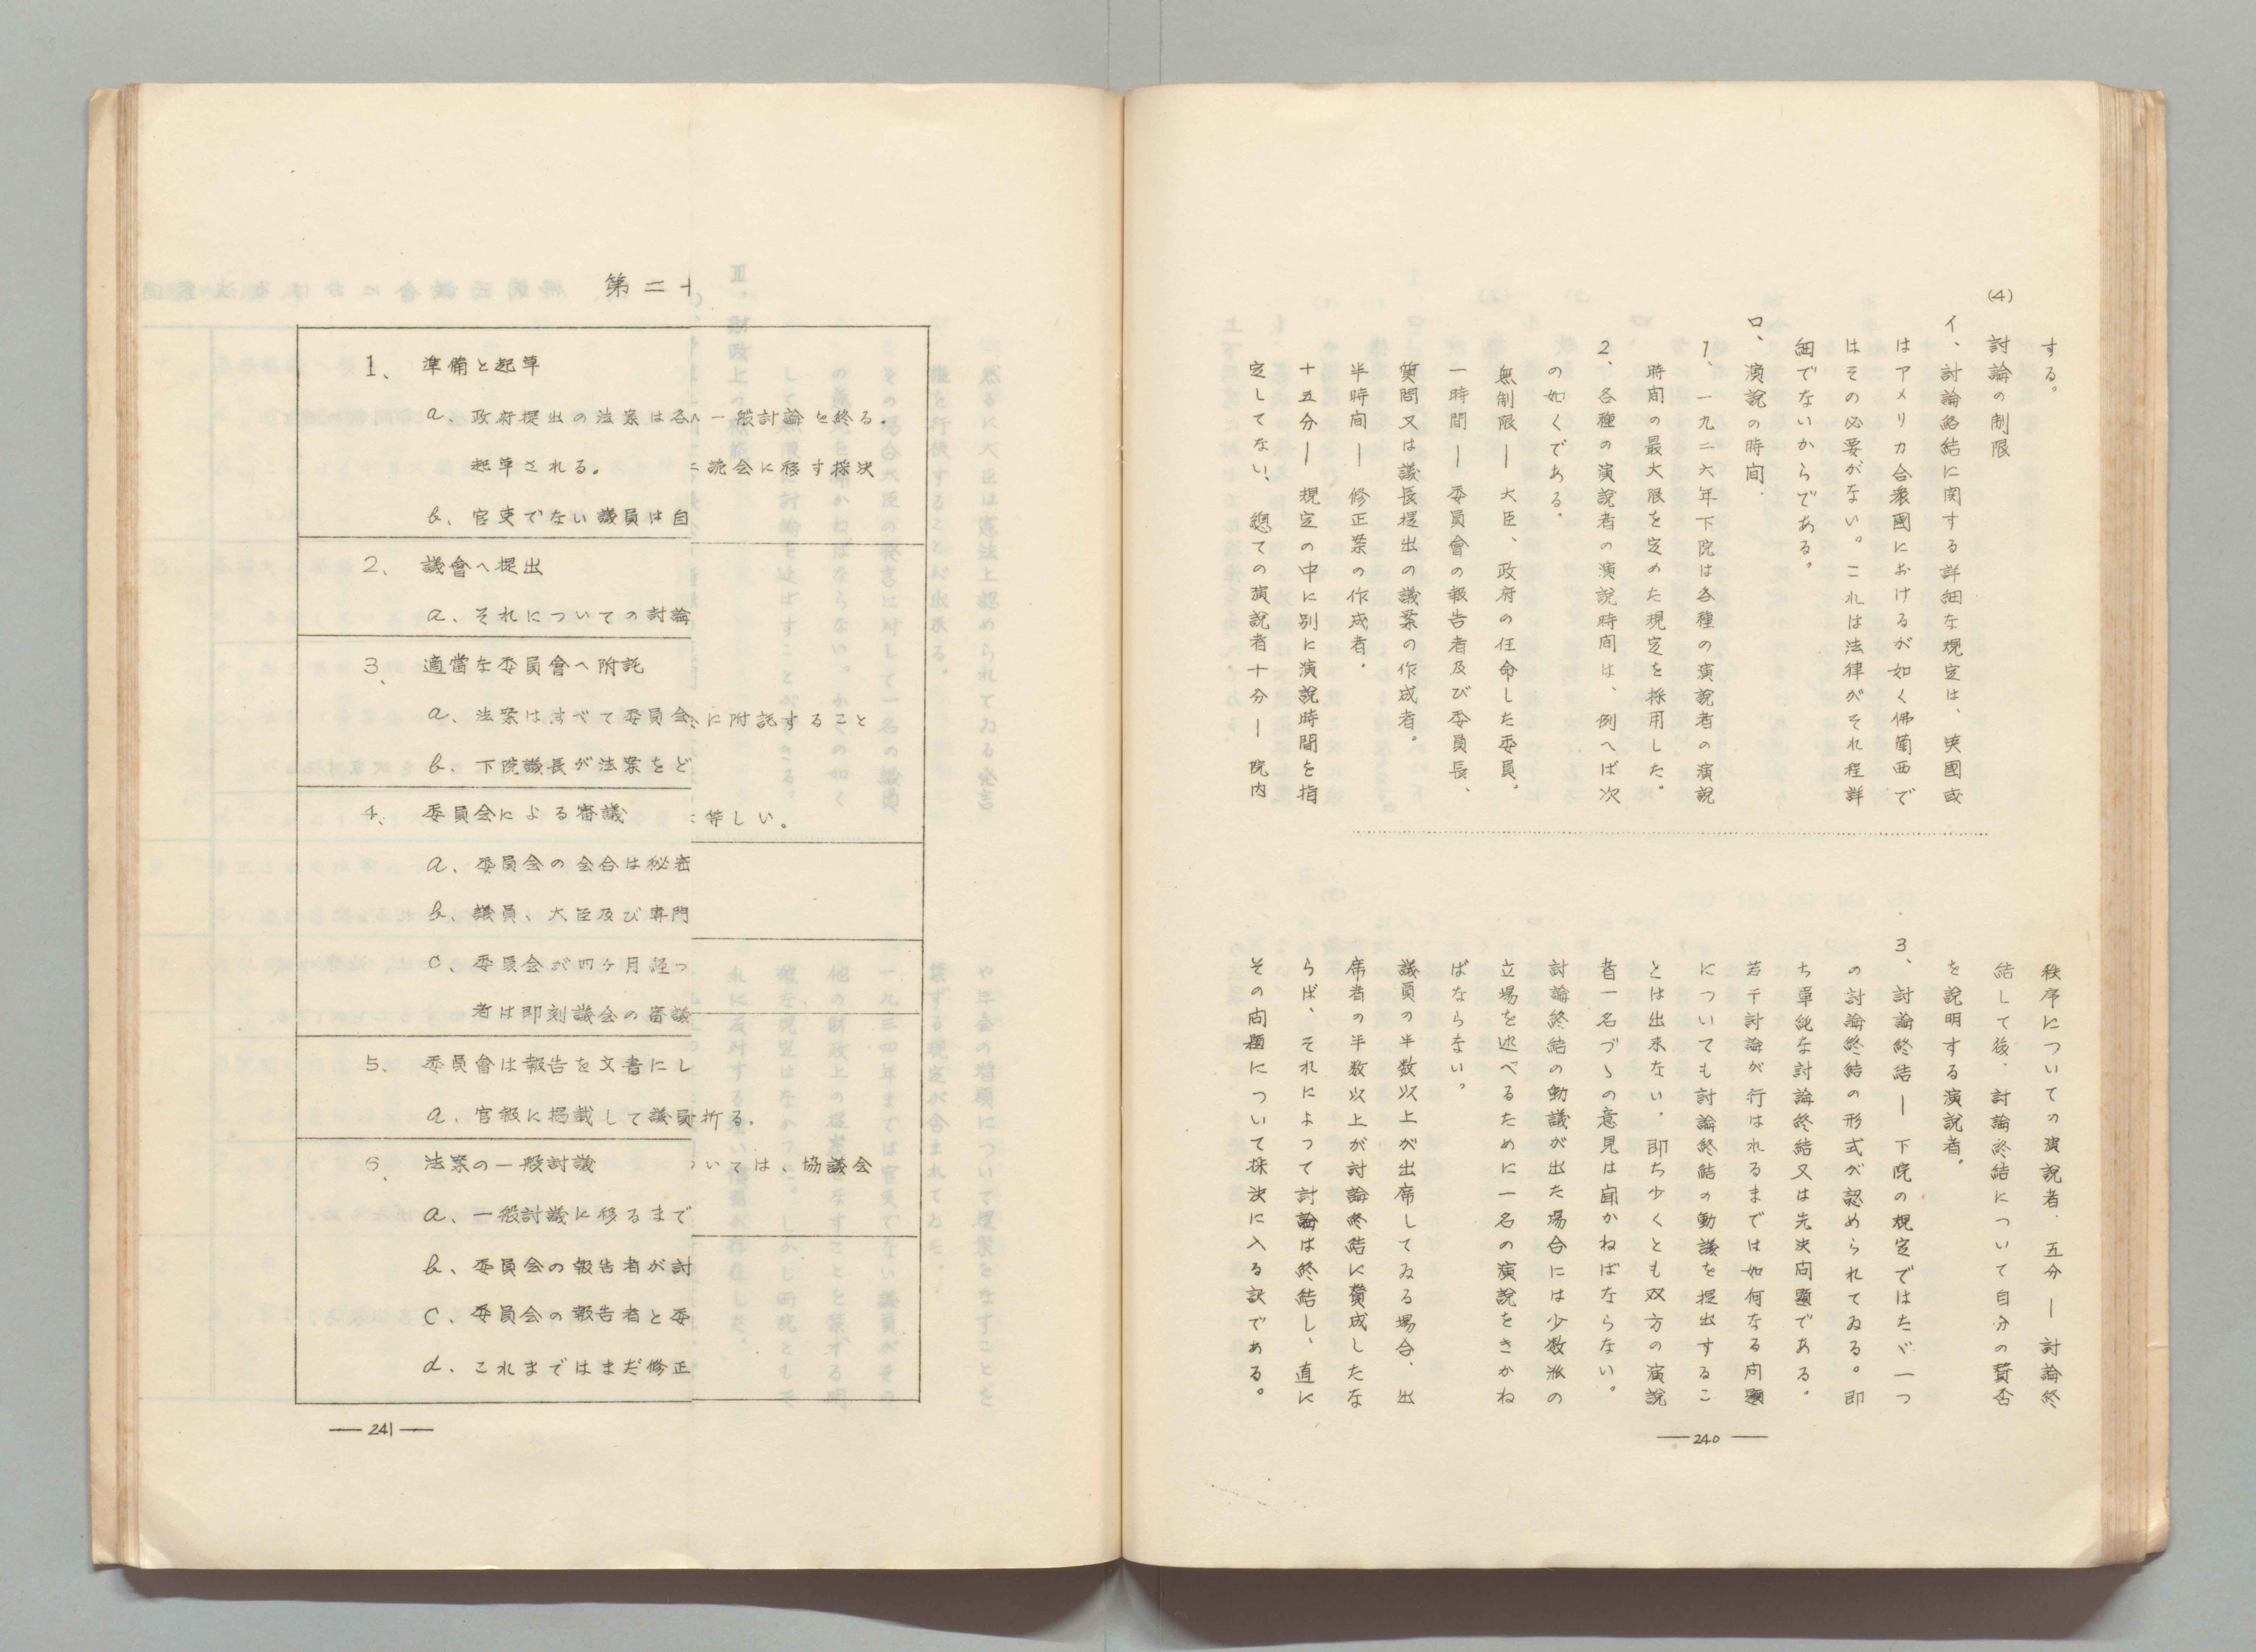 する。
(4) 討論の制限
イ、討論終結に関する詳細な規定は、英國或
はアメリカ合衆國におけるが如く佛蘭西で
はその必要がない。これは法律がそれ程詳
細でないからである。
ロ、演説の時間.
1、一九二六年下院は各種の演説者の演説
時間の最大限を定めた規定を採用した。
2、各種の演説者の演説時間は、例へば次
の如くである。
無制限— 大臣、政府の任命した委員。
一時間— 委員會の報告者及び委員長、
質問又は議長提出の議案の作成者。
半時間— 修正案の作成者。
十五分— 規定の中に別に演説時間を指
定してない、總ての演説者十分— 院内
秩序についての演説者. 五分— 討論終
結して後、討論終結について自分の賛否
を説明する演説者。
3、討論終結— 下院の規定ではたゞ一つ
の討論終結の形式が認められてゐる。即
ち単純な討論終結又は先決問題である。
若干討論が行はれるまでは如何なる問題
についても討論終結の動議を提出するこ
とは出来ない。即ち少くとも双方の演説
者一名づゝの意見は聞かねばならない。
討論終結の動議が出た場合には少数派の
立場を述べるために一名の演説をきかね
ばならない。
議員の半数以上が出席してゐる場合、出
席者の半数以上が討論終結に賛成したな
らば、それによって討論は終結し、直に
その問題について採決に入る訳である。
— 240 —
第二十
1、準備と起草
a、政府提出の法案は各
一般討論を終る。
起草される。
読会に移す採決
b、官吏でない議員は自
2、議會へ提出
a、それについての討論
3、適當な委員會へ附託
a、法案はすべて委員会
に附託すること
b、下院議長が法案をど
4、委員会による審議
等しい。
a、委員会の会合は秘密
b、議員、大臣及び専門
c、委員会が四ケ月経っ
者は即刻議会の審議
5、委員會は報告を文書にし
a、官報に掲載して議員
折る。
6、法案の一般討議
ついては、協議会
a、一般討議に移るまで
b、委員会の報告者が討
c、委員会の報告者と委
d、これまではまだ修正
— 241 —